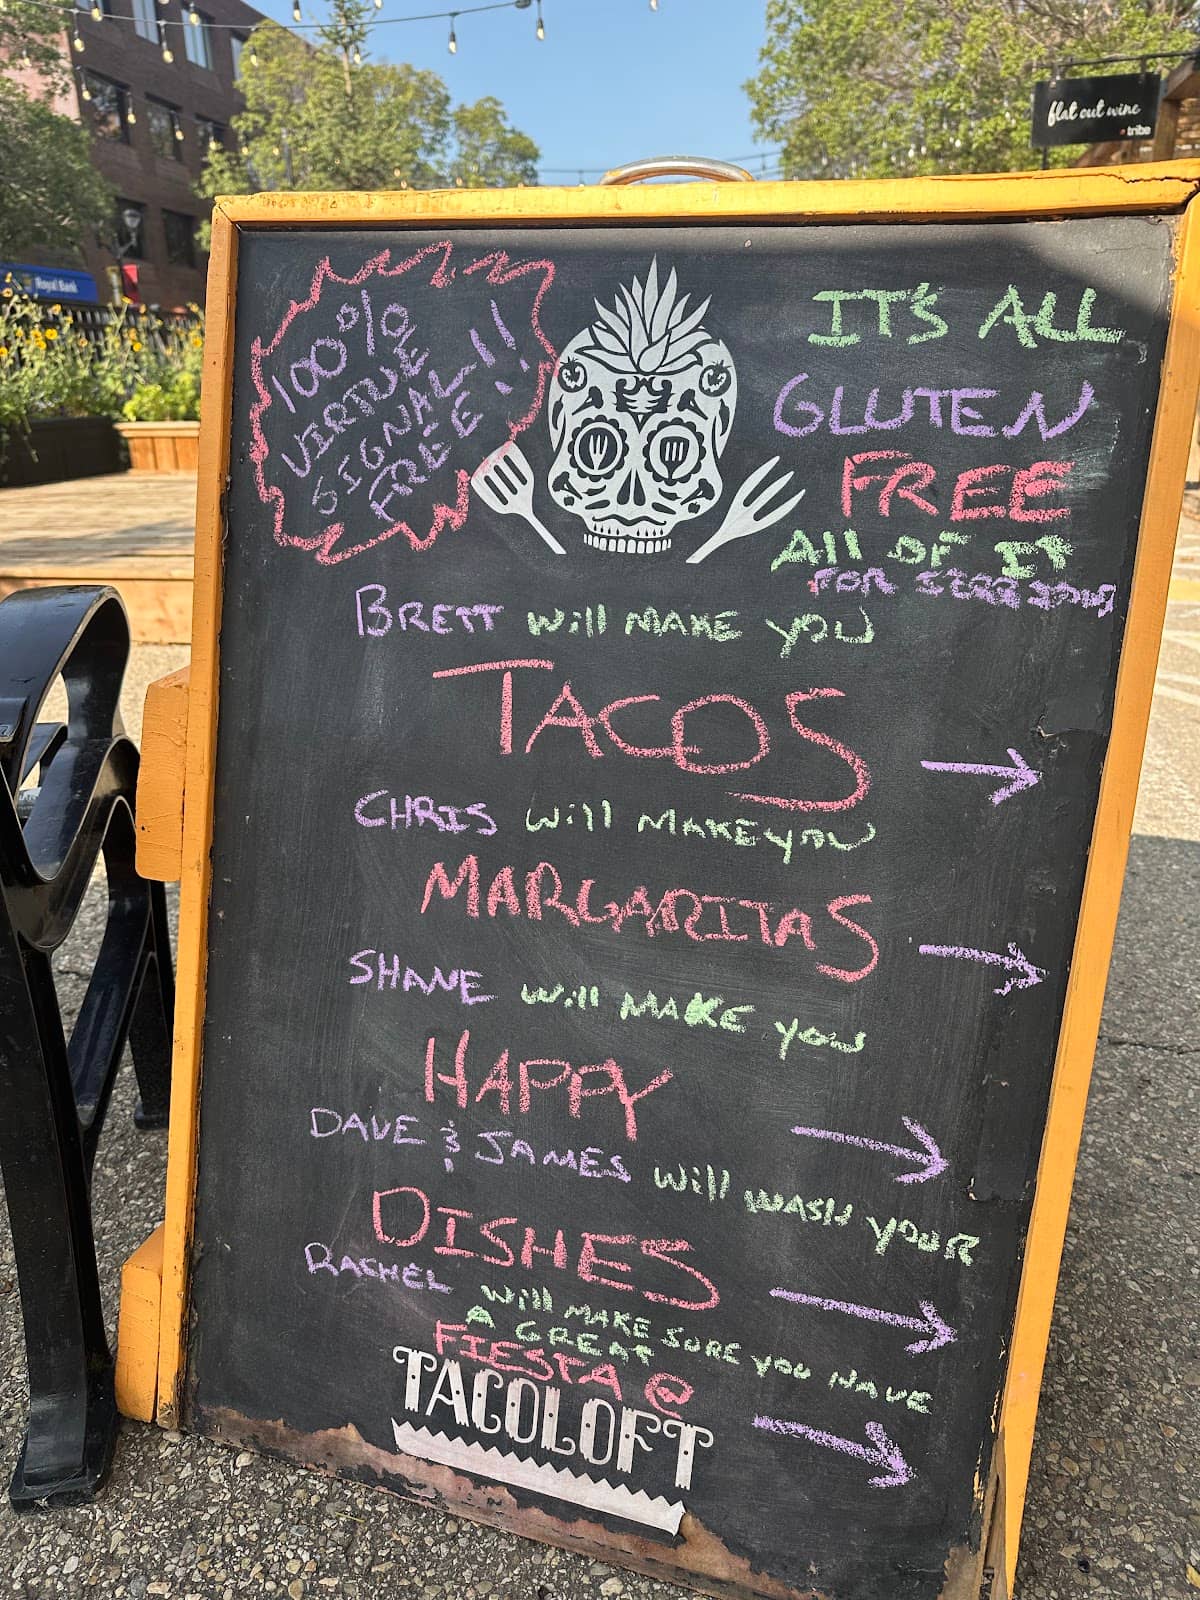 flat out wine
tribe
Royal Bank
100%
VIRTUE
SIGNAL
FREE!!
IT'S ALL
GLUTEN
FREE
All OF IT
FOR
BRETT will MAKE YOU
TACOS
CHRIS will MAKE YOU
MARGARITAS
SHANE will MAKE YOU
HAPPY
DAVE & JAMES will WASH YOUR
DISHES
RACHEL will MAKE SURE YOU HAVE
A GREAT
FIESTA @
TACOLOFT